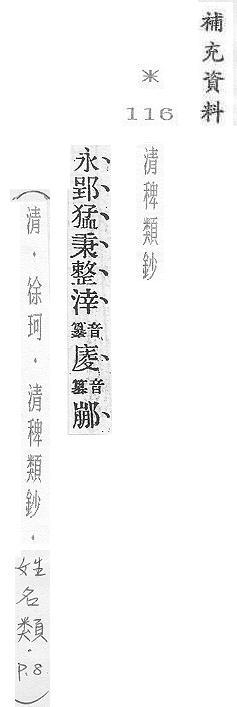 補充資料
※
116
清稗類鈔
永郢猛秉整滓音庱音
（清．徐珂．清稗類鈔．姓名類．P.8）